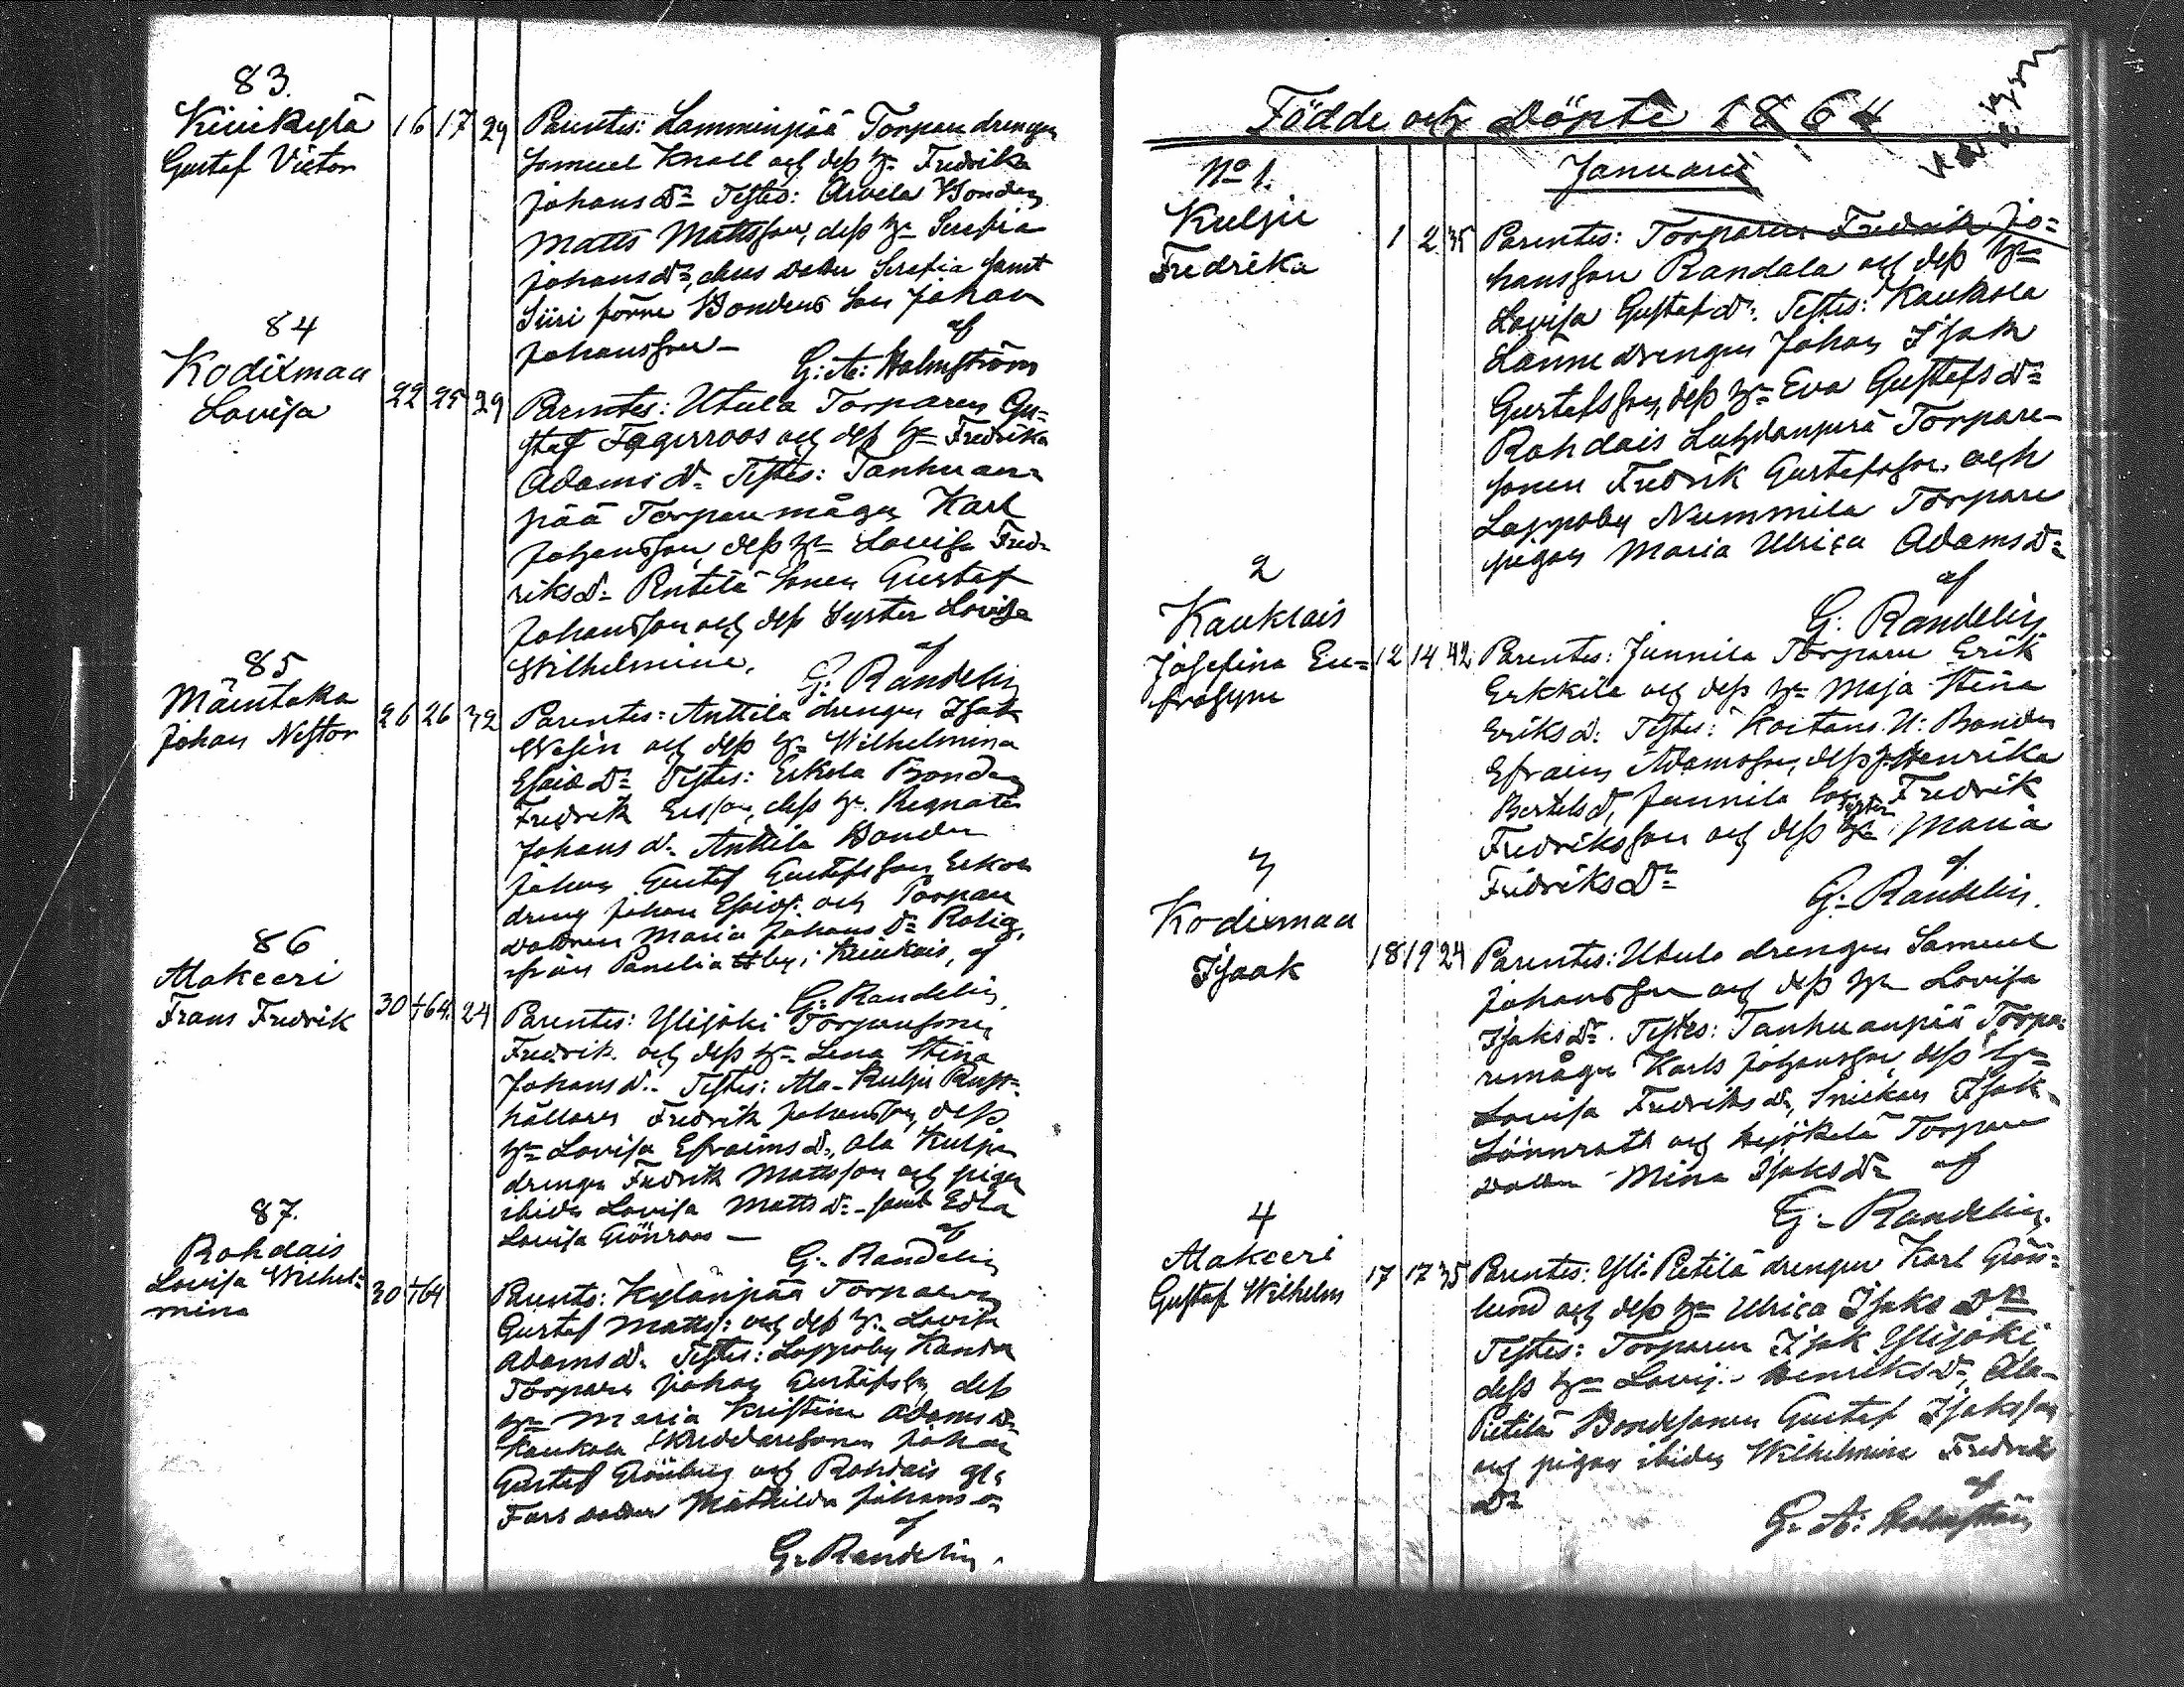 83.
Kiukylä
Gustaf Victor
16 17 29
Parentes: Lamminpää Torpare drengen
Samuel Knall och dess h: Fredrika
Johansdr Testes: Arvela Bonden
Matts Mattsson, dess h: Serafia
Johansdr, dens dotter Serafia samt
Siiri förre Bondens Son Johan
Johansson — af
G: A: Holmström
84
Kodixmaa
Lovisa
22 25 29
Parentes: Utula Torparen Gu=
staf Fagerroos och dess h: Fredrika
Adamsdr Testes: Tanhuan=
pää Torpare mågen Karl
Johansson, dess h: Lovisa Fred=
riksdr Sonen Gustaf
Johansson och dess Syster Lovisa
Wilhelmina. af
G: Randelin
85
Mäentaka
Johan Nestor
26 26 32
Parentes: Anttila drengen Isak
och dess h: Wilhelmina
Esaiedr Testes: Erkola Bonden
Fredrik Ersson, dess h: Regnata
Johansdr Anttila Bonden
Johan Gustaf Gustafsson Erkola
dreng Johan Esaiss: och Torpare
dottren Maria Johansdr Rolig,
från Paneliaby i Kiukais, af
G: Randelin
86
Alakeeri
Frans Fredrik
30 +64. 24
Parentes: Ylijoki Torparesonen
Fredrik och dess h: Lena Stina
Johansdr: Testes: Ala-Kulju Rust=
hållaren Fredrik Johansson, dess
h: Lovisa Efraimsdr, Ala Kulju
drengen Fredrik Mattsson och pigan
ibidn Lovisa Mattsdr samt Edla
Lovisa Grönroos — af
G: Randelin
87.
Rohdais
Lovisa Wilhel=
mina
30 +64
Parents: Kylänpää Torparen
Gustaf Matts: och dess h: Lovisa
Adamsdr Testes: Lappoby
Torparen Johan Gustafson, dess
h: Maria Kristina Adamsdr
Kaukola Skreddaresonen Johan
Gustaf Grönberg och Rohdais gla
Fars dotter Mathilda Johansdr
af
G: Randelin.
Födde och Döpte 1864
Januari
No 1.
Kulju
Fredrika
1 2 35
Parentes: Torparen Fredrik Jo=
hansson Randala och dess h:
Lovisa Gustafdr: Testes: Kaukola
Länne drengen Johan Isak
Gustafsson, dess h: Eva Gustafsdr
Rohdais Torpare
sonen Fredrik Gustafsson och
Lappoby Nummila Torpare
pigan Maria Ulrica Adamsdr
af
G: Randelin
2
Kauklais
Josefina Eu=
frosyne
12 14 42
Parentes: Junnila Torpare Erik
Erkkila och dess h: Maja Stina
Eriksdr: Testes: N: Bonden
Efraim Adamsson, dess h: Henrika
Bertelsdr, Junnila Fredrik
Fredriksson och dess h: syster Maria
Fredriksdr af
G: Randelin.
3
Kodixmaa
Isaak
18 19 24
Parentes: Utula drengen Samuel
Johansson och dess h: Lovisa
Isaksdr. Testes: Tanhuanpää Torpa=
remågen Karls Johansson, dess h:
Lovisa Fredriksdr, Snickar Isak
Lönnroth och Torpare
dotter Mina Isaksdr af
G: Randelin.
4
Alakeeri
Gustaf Wilhelm
17 17 35
Parentes: Yli-Pietilä drengen Karl Grön=
lund och dess h: Ulrica Isaks Dr
Testes: Torparen Isak Ylijoki
dess h: Lovis: Henriksdr, Ala-
Pietilä Bondesonen Gustaf Isaksson
och pigan ibidn Wilhelmina Fredriks
Dr af
G: A: Holmström